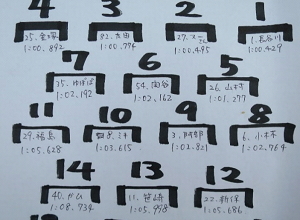 4 3 2 1
25. 金塚 82. 太田 27. 1. 長谷川
1:00.892 1:00.794 1:00.495 1:00.429
7 6 5
35. ゆはば 54. 向谷 26. 山村
1:02.192 1:02.162 1:01.277
11 10 9 8
29. 福島 8. 3. 阿部 6. 小林
1:05.628 1:03.615 1:02.821 1:02.764
14 13 12
40. 11. 笹崎 22. 新保
1:08.734 1:05.998 1:05.686